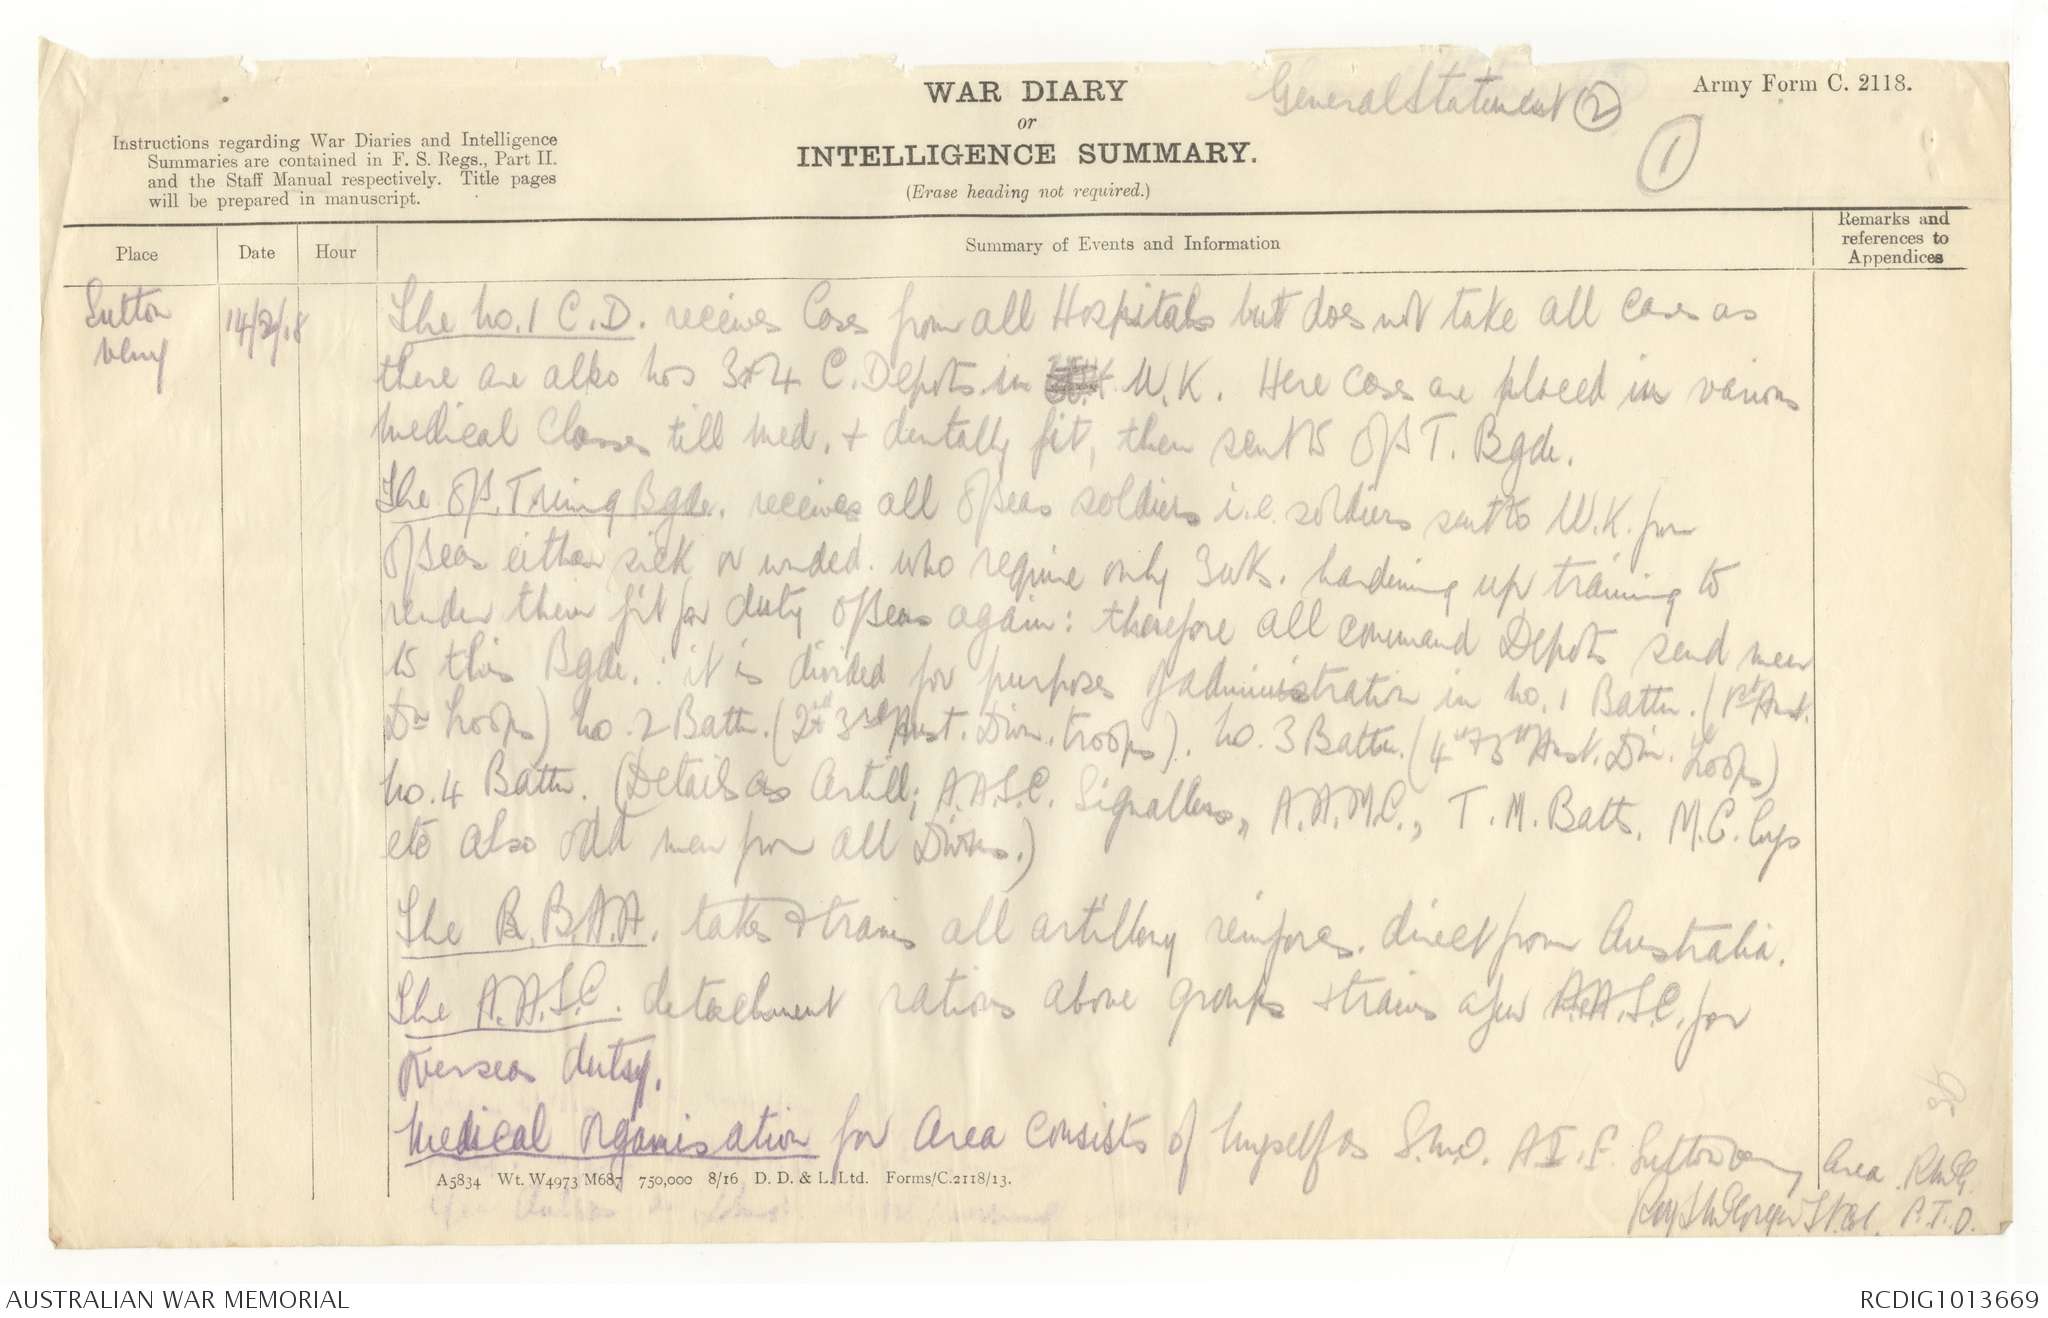 WAR DIARY
or
INTELLIGENCE SUMMARY.
(Erase heading not required.)
General Statement 2
1
Army Form C. 2118.
Instructions regarding War Diaries and Intelligence
Summaries are contained in F. S. Regs., Part II.
and the Staff Manual respectively. Title pages
will be prepared in manuscript.
Place
Date
Hour
Summary of Events and Information
Remarks and
references to
Appendices
Sutton
Veny
14/2/18
The No. 1 C.D. receives Cases from all Hospitals but does not take all cases as
there are also Nos 3 & 4 C. Depots in U.K. Here cases are placed in various
medical Classes till med. & dentally fit, then sent to O/S T. Bgde.
The O/S. Trning Bgde. receives all O/Seas soldiers i.e. soldiers sent to U.K. from
O/Seas either sick or wnded. who require only 3 wks. hardening up training to
render them fit for duty O/Seas again: therefore all command Depots send men
to this Bgde.: it is divided for purposes of administration in No. 1 Battn. (1st Aust.
Dn Troops) No. 2 Battn. (2nd & 3rd Aust. Divn. troops). No. 3 Battn. (4th & 5th Aust. Div. Troops)
No. 4 Battn. (Details as Artill; A.A.S.C. Signallers, A.A.M.C., T. M. Batts. M.G. Coys
etc also odd men from all Divsns.)
The R.B.A.A. takes & trains all artillery reinforcs. direct from Australia.
The A.A.S.C. detachment rations above groups & trains a few A.A.S.C. for
overseas duty.
Medical Organisation for Area consists of myself as S.M.O. A.I.F. Sutton Veny Area. R.McG.
Roy S McGregor Lt Col. P.T.O.
A5834 Wt. W4973 M687 750,000 8/16 D. D. & L. Ltd. Forms/C.2118/13.
AUSTRALIAN WAR MEMORIAL
RCDIG1013669